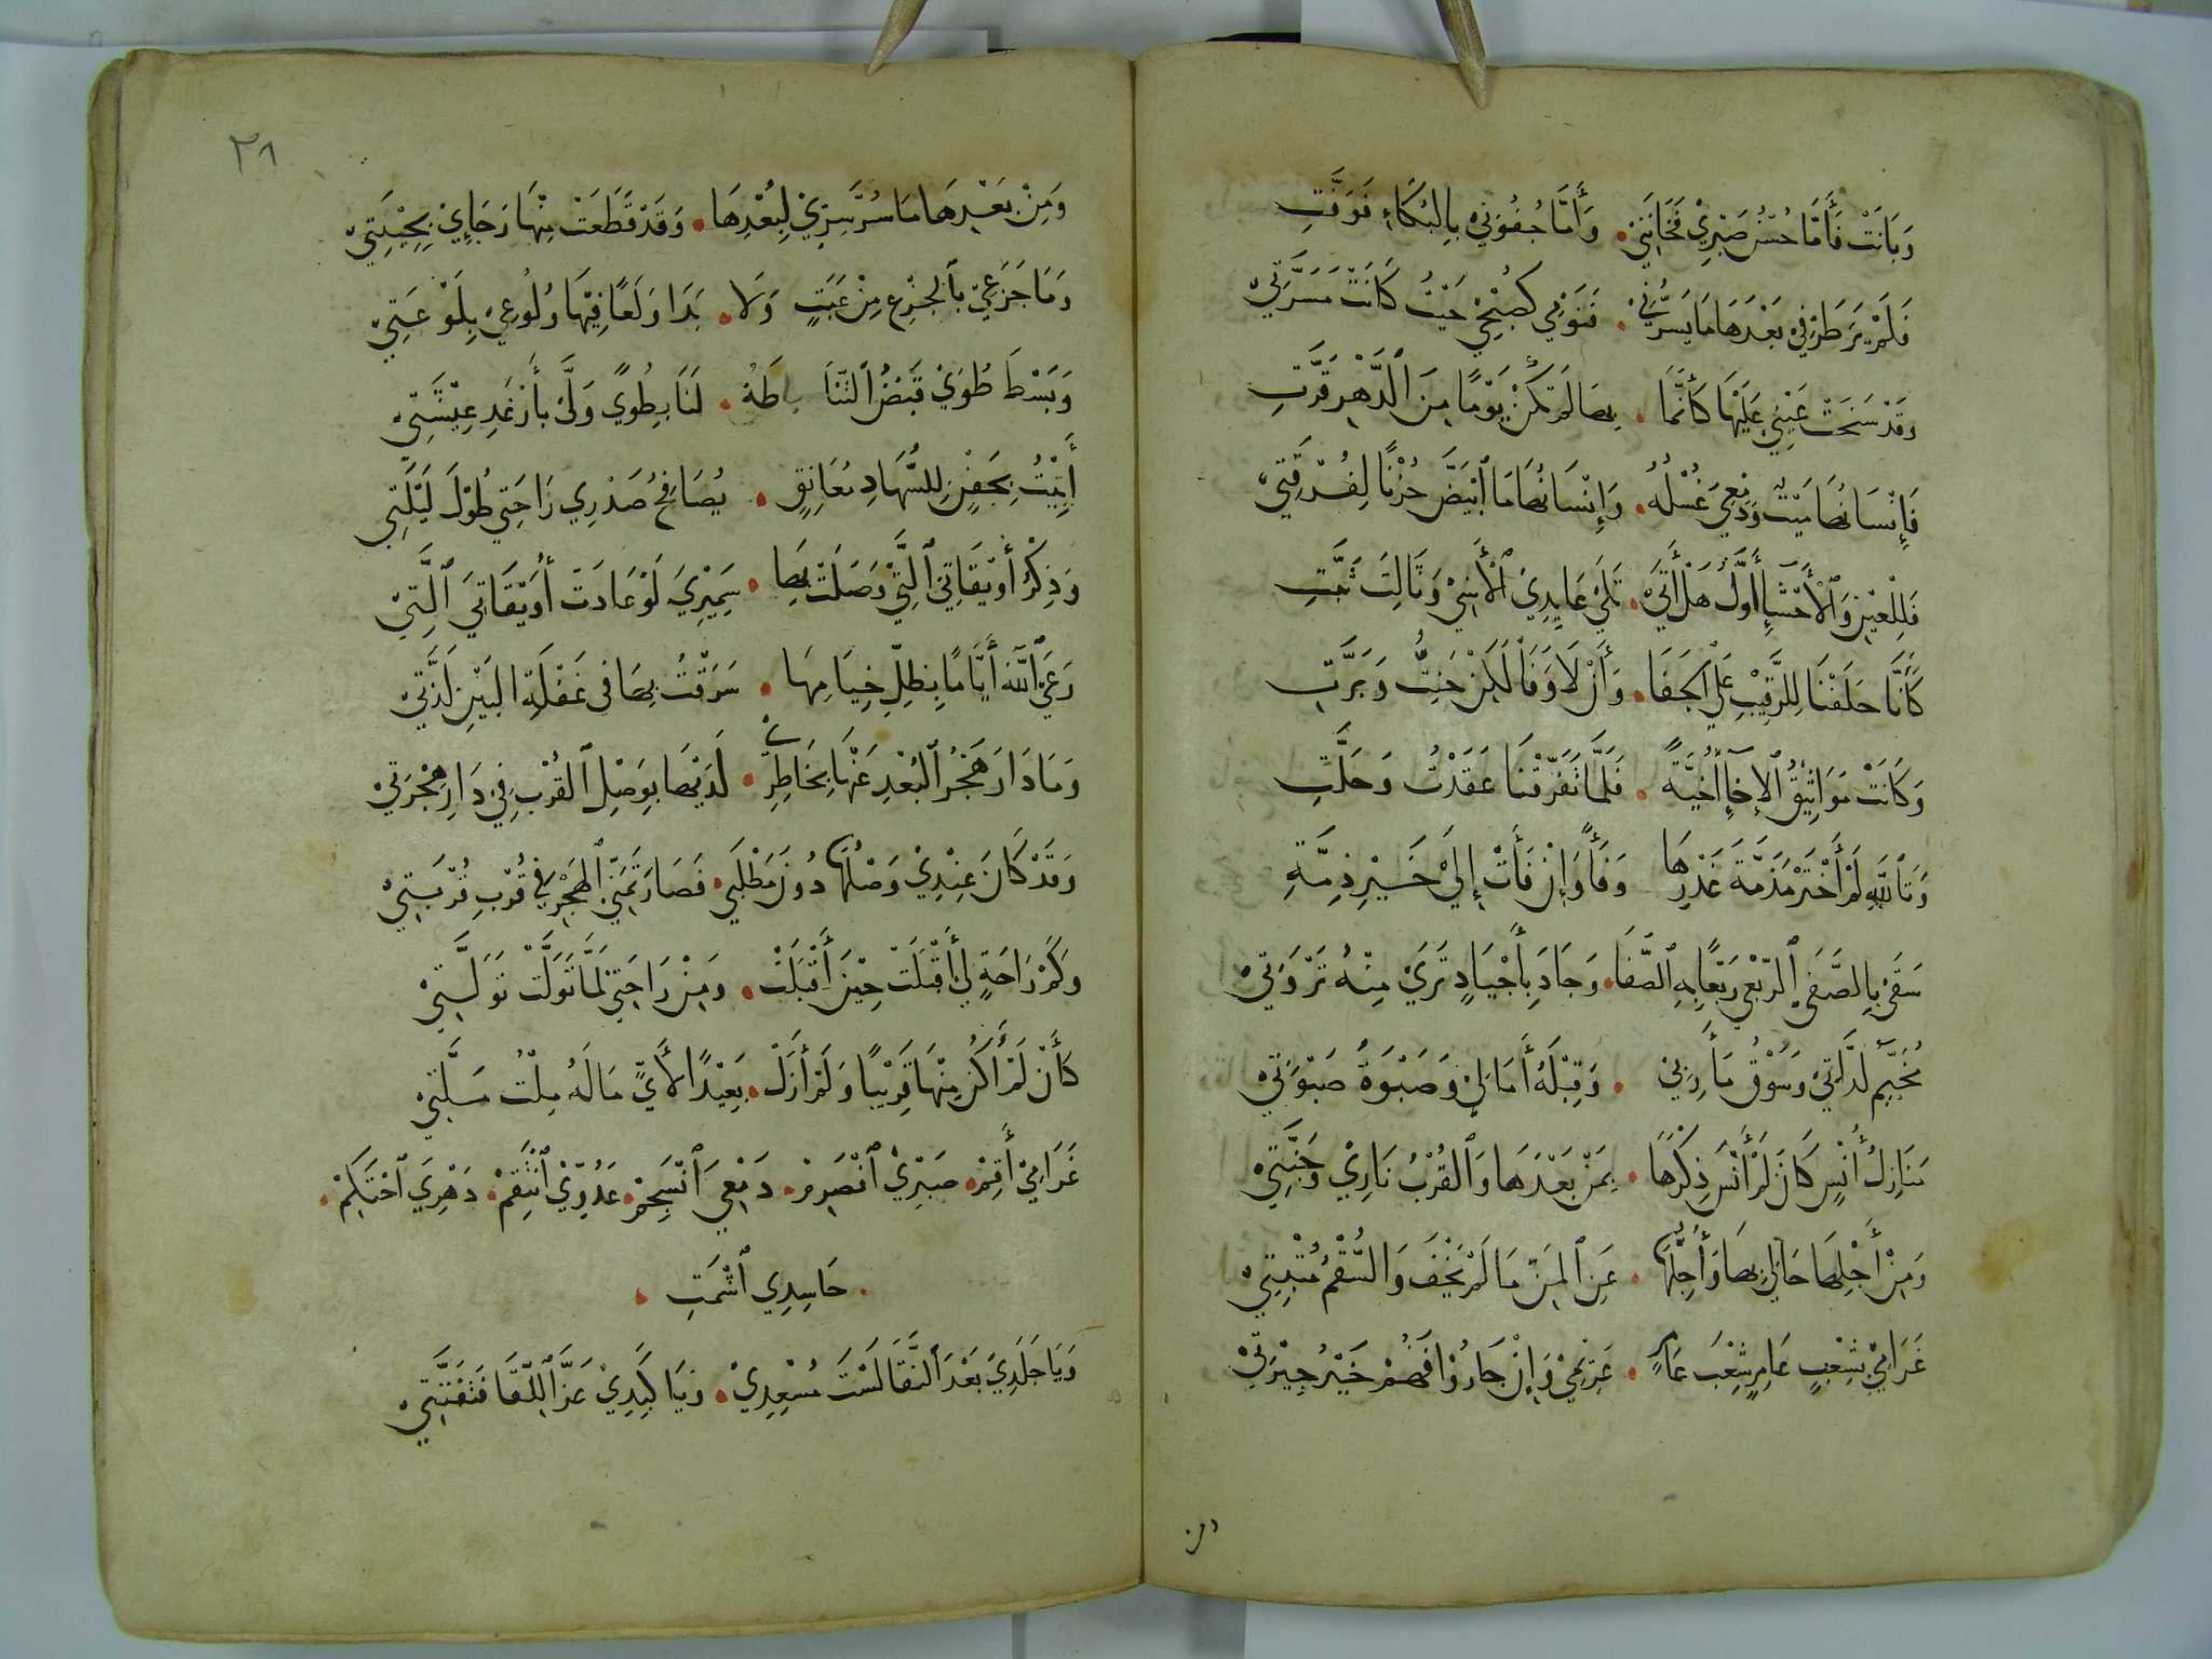 وَبَانَتْ فَأَمَّا حُسْنُ صَبْرِيْ فَخَانَنِيْ . وَأَمَّا جُفُوْنِيْ بِالْبُكَاءِ فَوَفَّتِ
فَلَمْ يَرَ طَرْفِيْ بَعْدَهَا مَا يَسُرُّنِيْ . فَنَوْمِيْ كَصُبْحِيْ حَيْثُ كَانَتْ مَسَرَّتِيْ
وَقَدْ سَخَنَتْ عَيْنِيْ عَلَيْهَا كَأَنَّهَا . بِهَا لَمْ تَكُنْ يَوْمًا مِنَ ٱلدَّهْرِ قَرَّتِ
فَإِنْسَانُهَا مَيْتٌ وَدَمْعِيَ غُسْلُهُ . وَإِنْسَانُهَا مَا ٱبْيَضَّ حُزْنًا لِفُرْقَتِيْ
فَلِلْعَيْنِ وَٱلْأَحْشَاءِ أَوَّلُ هَلْ أَتَىْ . تَلَىْ عَايِدِيَ ٱلْأَسِيْ وَثَالِثَ تَبَّتِ
كَأَنَّا حَلَفْنَا لِلرَّقِيْبِ عَلَى ٱلْجَفَا . وَأَنْ لَا وَفَا لَكِنْ حَنِثْتُ وَبَرَّتِ
وَكَانَتْ مَوَاثِيْقُ ٱلْإِخَاءِ أَخِيَّةً . فَلَمَّا تَفَرَّقْنَا عَقَدْتُ وَحَلَّتِ
وَتَٱللَّهِ لَمْ أَخْتَرْ مَذَمَّةَ غَدْرِهَا وَفَاءً وَإِنْ فَأَتْ إِلَىْ خَيْرِ ذِمَّةِ
سَقَىْ بِالصَّفَى ٱلرَّبْعِيُّ رَبْعًا بِهِ ٱلصَّفَا . وَجَادَ بِأَجْيَادٍ ثَرَىْ مِنْهُ ثَرْوَتِيْ
مُخَيَّمَ لَذَّاتِيْ وَسَوْقَ مَأَرِبِيْ . وَقِبْلَةَ أَمَالِيْ وَصَبْوَةَ صَبْوَتِيْ
مَنَازِلُ أُنْسٍ كَانَ لَمْ أَنْسَ ذِكْرَهَا . بِمَنْ بَعْدَهَا وَٱلْقُرْبُ نَارِيْ وَجَنَّتِيْ
وَمِنْ أَجْلِهَا حَالِيْ بِهَا وَأُجِلُّهَا . عَنِ ٱلْمَنِّ مَا لَمْ تَخْفَ وَالسُّقْمُ مُثْبِتِيْ
غَرَامِيْ بِشِعْبٍ عَامِرٍ شِعْبَ عَامِرٍ . غَرِيْمِيْ وَإِنْ جَارُوْا فَهُمْ خَيْرُ جِيْرَتِيْ
ومن
٣٨
وَمِنْ بَعْدِهَا مَا سُرَّ سِرِّيْ لِبُعْدِهَا . وَقَدْ قَطَعَتْ مِنْهَا رَجَايِيْ بِخِيْبَتِيْ
وَمَا جَزَعِيْ بِٱلْجِزْعِ مِنْ عَبَثٍ وَلَا . بَدَا وَلَعًا فِيْهَا وُلُوْعِيْ بِلَوْعَتِيْ
وَبَسْطَ طُوَىْ قَبْضُ ٱلتَّنَائِيْ بِسَاطَهُ . لَنَا بِطُوًى وَلَّىْ بأَرْغَدِ عِيْشَتِيْ
أَبِيْتُ بِجَفْنٍ لِلسُّهَادِ مُعَانِقٍ . يُصَافِحُ صَدْرِيْ رَاحَتِيْ طُوْلَ لَيْلَتِيْ
وَذِكْرُ أُوَيْقَاتِيْ ٱلَّتِيْ وَصَلَتْ بِهَا . سَمِيْرِيَ لَوْ عَادَتْ أُوَيْقَاتِيَ ٱلَّتِيْ
رَعَىْ ٱللَّهُ أَيَّامًا بِظِلِّ خِيَامِهَا . سَرَقْتُ بِهَا فى غَفْلَةِ الْبَيْنِ لَذَّتِيْ
وَمَا دَارَ هَجْرُ ٱلْبُعْدِ عَنْهَا بِخَاطِرِيْ . لَدَيْهَا بِوَصْلِ ٱلْقُرْبِ فِيْ دَارِ هِجْرَتِيْ
وَقَدْ كَانَ عِنْدِيْ وَصْلُهَا دُوْنَ مَطْلَبِيْ . فَصَارَ تَمَنِّيْ ٱلْهَجْرِ فِيْ قُرْبِ قُرْبَتِيْ
وَكَمْ رَاحَةٍ لِيْ أَقْبَلَتْ حِيْنَ أَقْبَلَتْ . وَمِنْ رَاحَتِيْ لَمَّا تَوَلَّتْ تَوَلَّتِيْ
كَأَنْ لَمْ أَكُنْ مِنْهَا قَرِيْبًا وَلَمْ أَزَلْ . بَعِيْدًا لأَيٍّ مَا لَهُ مِلْتُ مَلَّتِيْ
غَرَامِيْ أَقِمْ . صَبْرِيْ ٱنْصَرِمْ . دَمْعِيَ ٱنْسَجِمْ . عَدُوِّيْ ٱنْتَقِمْ . دَهْرِيَ ٱحْتَكِمْ .
. حَاسِدِي ٱشْمَتِ .
وَيَا جَلَدِيْ بَعْدَ ٱلنَّقَا لَسْتَ مُسْعِدِيْ . وَيَا كَبِدِيْ عَزَّ ٱللِّقَا فَتَفَتَّتِيْ